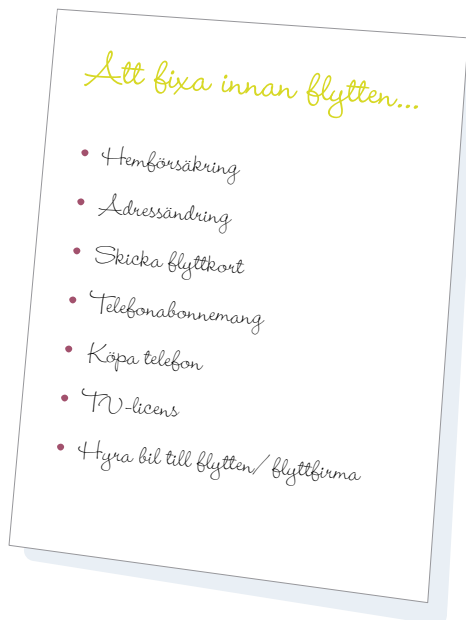 Att fixa innan flytten...
• Hemförsäkring
• Adressändring
• Skicka flyttkort
• Telefonabonnemang
• Köpa telefon
• TV-licens
• Hyra bil till flytten/ flyttfirma